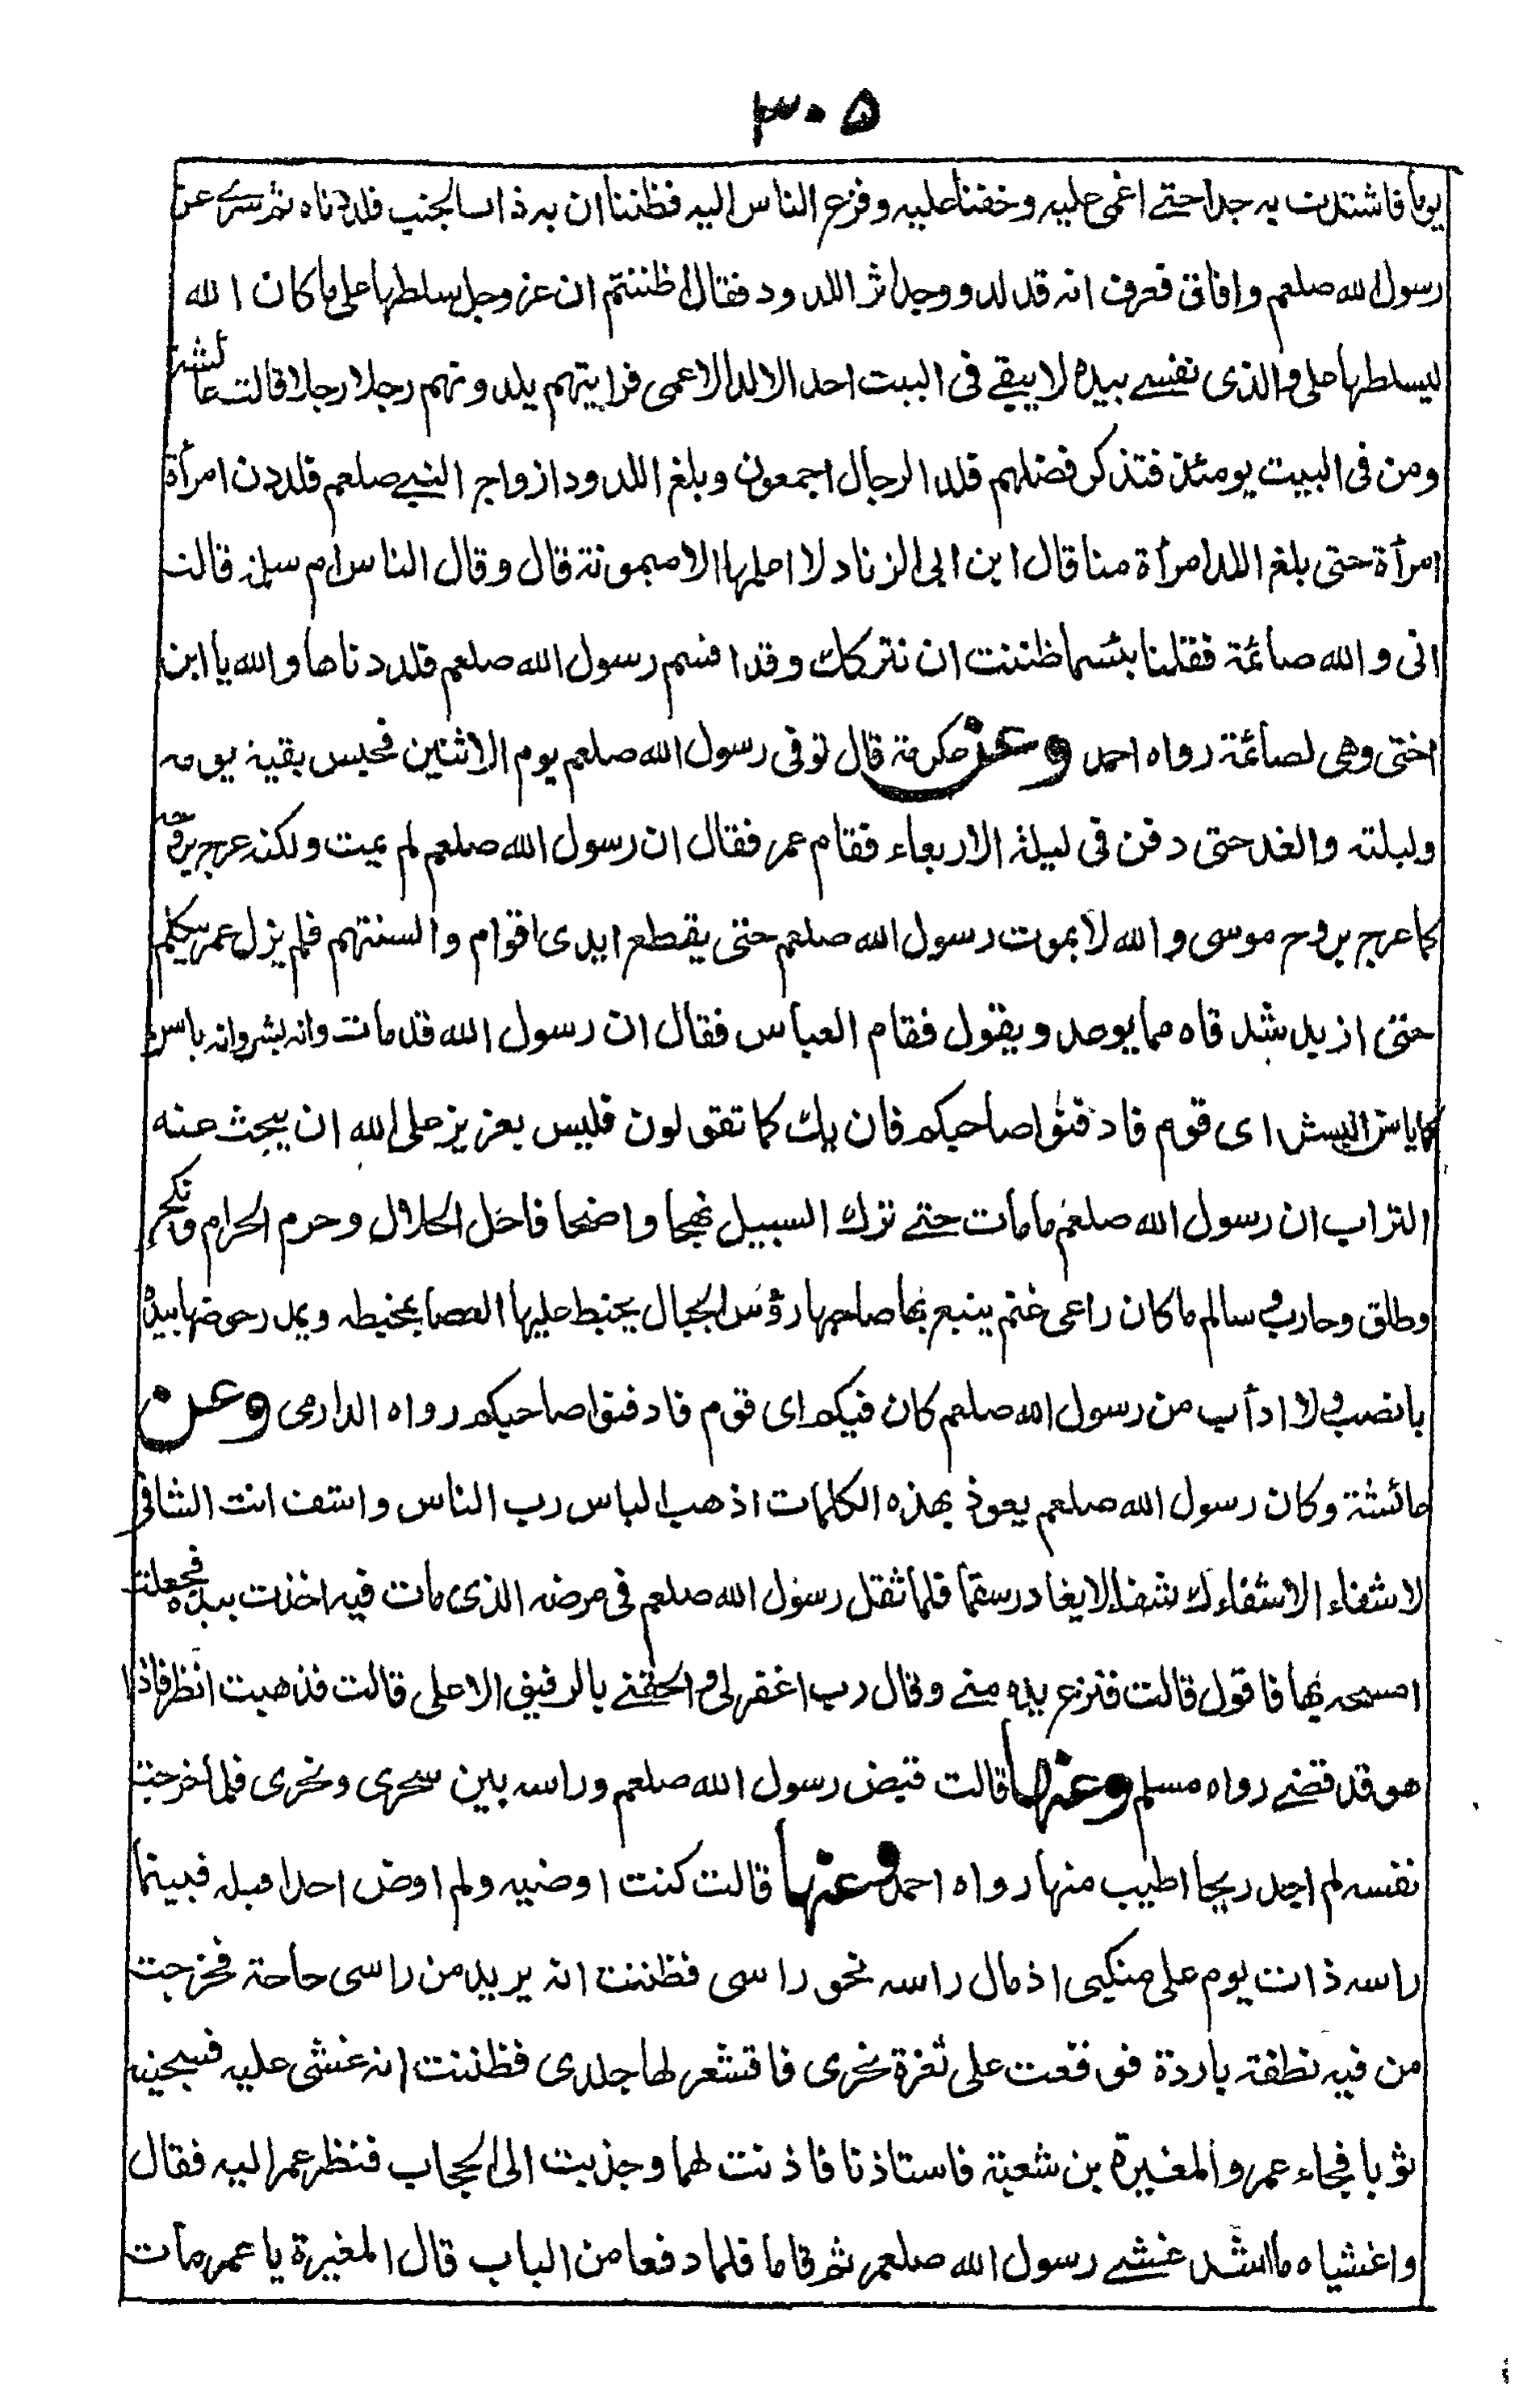 ٣٠٥
يوما فاشتدت به جدا حتے اغمى عليه وخفنا عليه وفزع الناس اليه فظننا ان به ذات الجنب فلددناه ثم سرے عن
رسول الله صلعم وافاق فعرف انه قد لد ووجد اثر اللدود فقال اظننتم ان عز وجل سلطها على ما كان الله
ليسلطها على والذى نفسے بيده لا يبقے فى البيت احد الا لد الا عمى فرايتهم يلدونهم رجلا رجلا قالت عائشة
ومن فى البيت يومئذ فتذكر فضلهم فلد الرجال اجمعون وبلغ اللدود ازواج النبے صلعم فلددن امرأة
امرأة حتى بلغ اللد امرأة منا قال ابن ابى الزناد لا اعلمها الا ميمونة قال وقال الناس ام سلمة قالت
انى والله صائمة فقلنا بئسما ظننت ان نتركك وقد اقسم رسول الله صلعم فلددناها والله يا ابن
اختى وهى لصائمة رواه احمد وعن عكرمة قال توفى رسول الله صلعم يوم الاثنين فحبس بقية يومه
وليلته والغد حتى دفن فى ليلة الاربعاء فقام عمر فقال ان رسول الله صلعم لم يمت ولكنه عرج بروحه
كما عرج بروح موسى والله لا يموت رسول الله صلعم حتى يقطع ايدى اقوام والسنتهم فلم يزل عمر يتكلم
حتى ازبد شدقاه مما يوعد ويقول فقام العباس فقال ان رسول الله قد مات وانه بشر وانه ياسن
كما ياسن البشر اى قوم فادفنوا صاحبكم فان يك كما تقولون فليس بعزيز على الله ان يبحث عنه
التراب ان رسول الله صلعم ما مات حتے ترك السبيل نهجا واضحا فاحل الحلال وحرم الحرام ونكح
وطلق وحارب وسالم ما كان راعى غنم يتبع بها صاحبها رؤس الجبال يخبط عليها العضاه بمخبطه ويمدر حوضها بيده
بانصب ولا ادأب من رسول الله صلعم كان فيكم اى قوم فادفنوا صاحبكم رواه الدارمى وعن
عائشة وكان رسول الله صلعم يعوذ بهذه الكلمات اذهب الباس رب الناس واشف انت الشافى
لا شفاء الا شفاءك شفاء لا يغادر سقما فلما ثقل رسول الله صلعم فى مرضه الذى مات فيه اخذت بيده فجعلت
امسحه بها فاقول قالت فنزع يده منے وقال رب اغفر لى والحقنے بالرفيق الاعلى قالت فذهبت انظر فاذا
هو قد قضے رواه مسلم وعنها قالت قبض رسول الله صلعم وراسه بين سحرى ونحرى فلما خرجت
نفسه لم اجد ريحا اطيب منها رواه احمد وعنها قالت كنت اوضيه ولم اوض احدا قبله فبينما
راسه ذات يوم على منكبى اذ مال راسه نحو راسى فظننت انه يريد من راسى حاجة فخرجت
من فيه نطفة باردة فوقعت على ثغرة نحرى فاقشعر لها جلدى فظننت انه غشى عليه فسجيته
ثوبا فجاء عمر والمغيرة بن شعبة فاستاذنا فاذنت لهما وجذبت الى الحجاب فنظر عمر اليه فقال
واغشياه ما اشد غشے رسول الله صلعم ثم قاما فلما دفعا من الباب قال المغيرة يا عمر مات